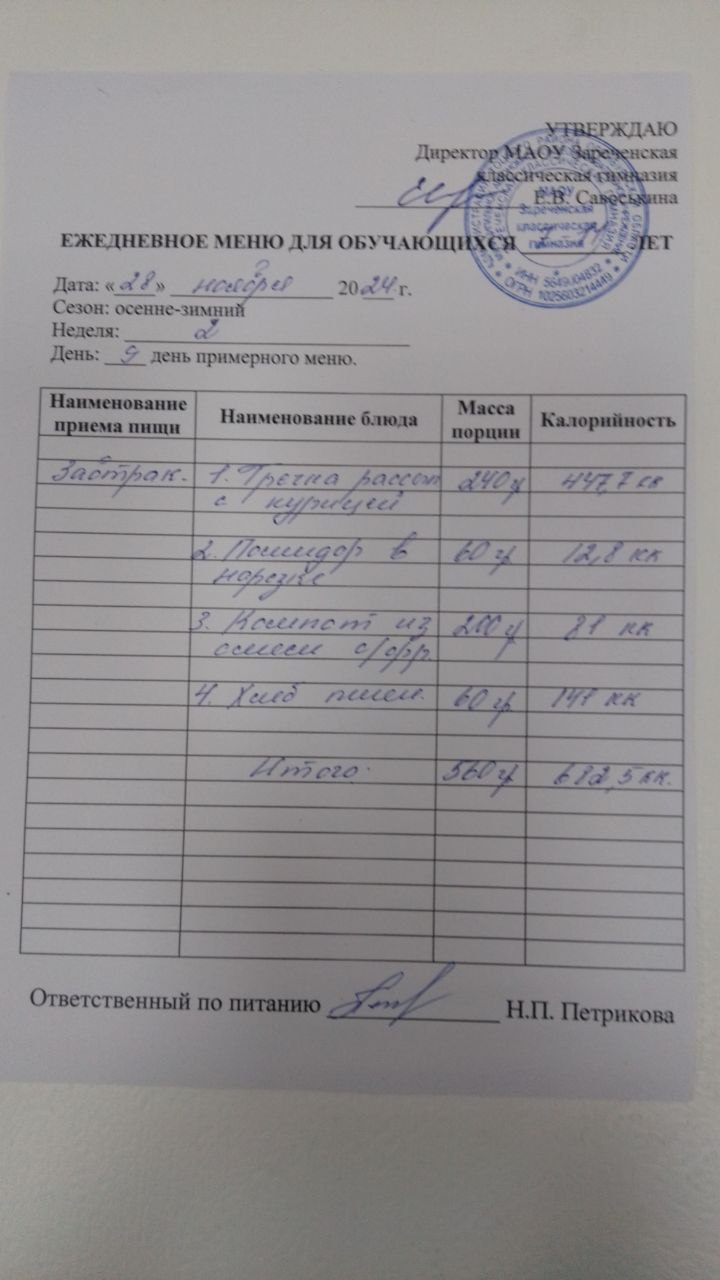 УТВЕРЖДАЮ
Директор МАОУ Зареченская
классическая гимназия
Е.В. Савоськина
МАОУ
Зареченская
классическая
гимназия
ОГРН 1025603214449
ЕЖЕДНЕВНОЕ МЕНЮ ДЛЯ ОБУЧАЮЩИХСЯ ЛЕТ
Дата: «28» ноября 2024 г.
Сезон: осенне-зимний
Неделя: 2
День: 9 день примерного меню.
Наименование приема пищи Наименование блюда Масса порции Калорийность
Завтрак. 1. Гречка рассып 240 г 447,7 кк
с курицей
2. Помидор в 60 гр 12,8 кк
нарезке
3. Компот из 200 г 81 кк
смеси с/фр.
4. Хлеб пшен. 60 гр 141 кк
Итого: 560 гр 682,5 кк.
Ответственный по питанию Н.П. Петрикова